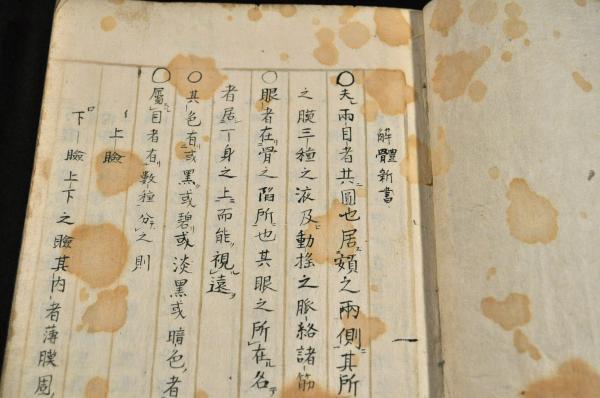 解體新書
〇夫兩目者其圓也居額之兩側其所
之膜三種之液及動揺之脈絡諸筋
〇眼者在骨之陷所也其眼之所在名
者居一身之上而能視遠
〇其色有或黑或碧或淡黑或暗色者
〇屬目者有數種分之則
上瞼
下瞼上下之瞼其内者薄膜周